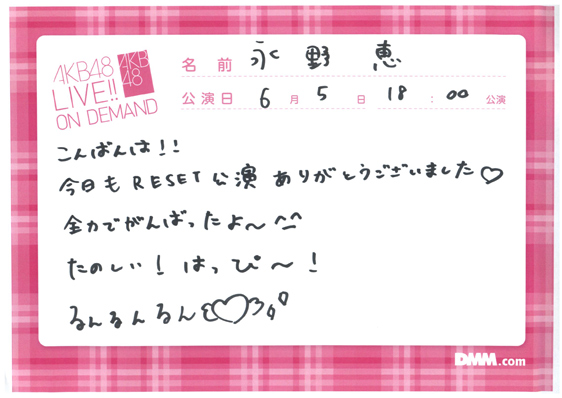 AKB48
LIVE!!
ON DEMAND
AKB
48
名前 永野恵
公演日 6月5日 18:00公演
こんばんは!!
今日もRESET公演ありがとうございました♡
全力でがんばったよ〜^^
たのしい!はっぴ〜!
るんるんるん
DMM.com